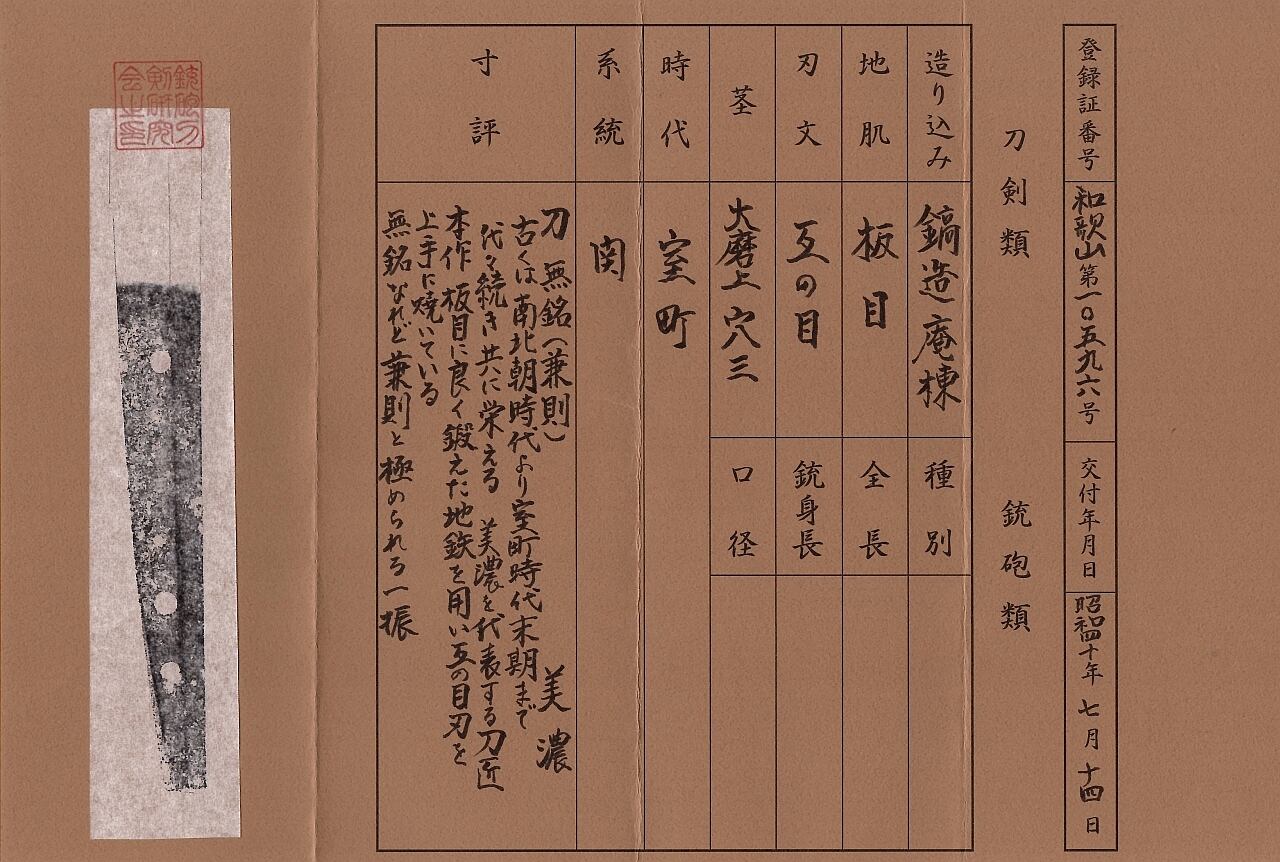 登録証番号 和歌山第一〇五九六号 交付年月日 昭和四十年七月十四日
刀剣類 銃砲類
造り込み 鎬造庵棟 種別
地肌 板目 全長
刃文 互の目 銃身長
茎 大磨上穴三 口径
時代 室町
系統 関
寸評
刀 無銘(兼則) 美濃
古くは南北朝時代より室町時代末期まで
代々続き共に栄える 美濃を代表する刀匠
本作 板目に良く鍛えた地鉄を用い互の目刃を
上手に焼いている
無銘なれど兼則と極められる一振
銃砲刀
剣研究
会之印